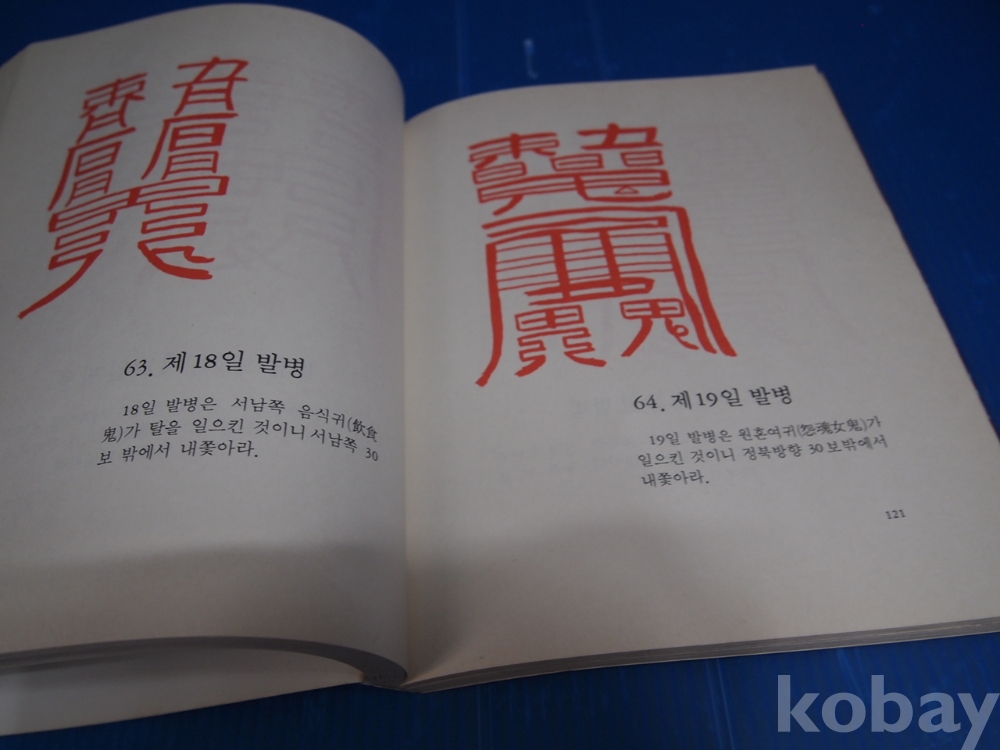 63. 제18일 발병
18일 발병은 서남쪽 음식귀(飮食
鬼)가 탈을 일으킨 것이니 서남쪽 30
보 밖에서 내쫓아라.
64. 제19일 발병
19일 발병은 원혼여귀(怨魂女鬼)가
일으킨 것이니 정북방향 30보밖에서
내쫓아라.
121
kobay